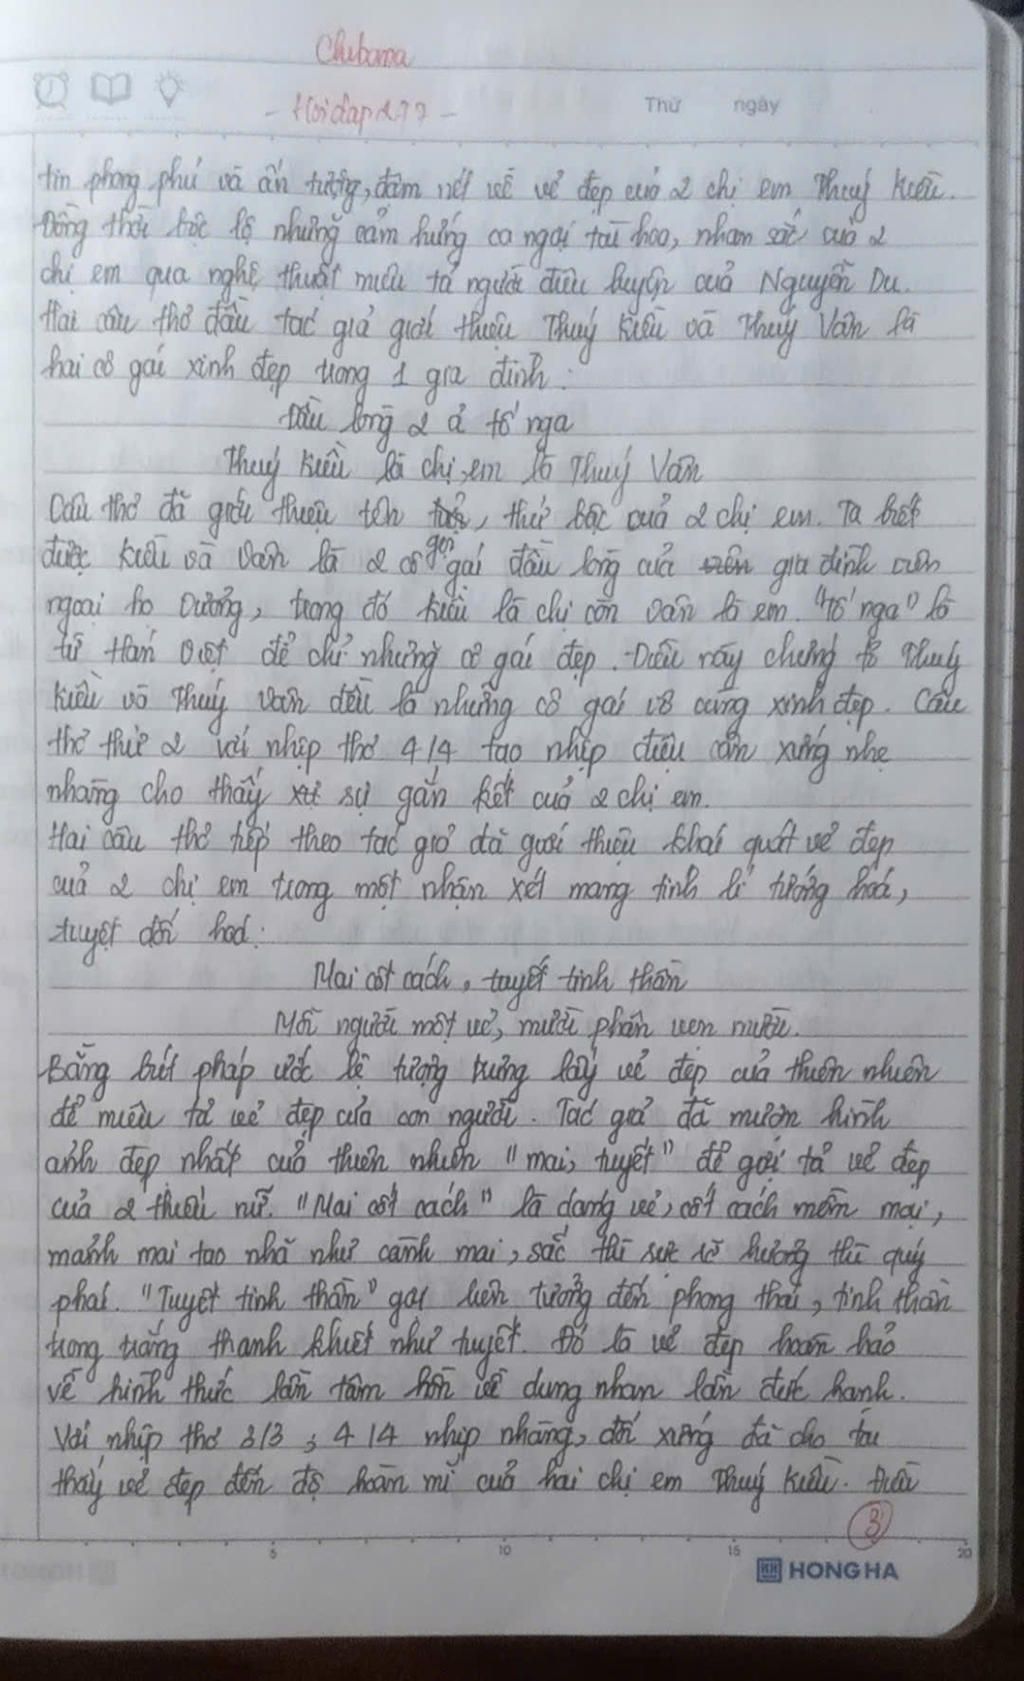 Chibama
- Hoidap277 -
Thứ ngày
tin phong phú và ấn tượng, đậm nét về vẻ đẹp của 2 chị em Thuý Kiều.
Đồng thời bộc lộ những cảm hứng ca ngợi tài hoa, nhan sắc của 2
chị em qua nghệ thuật miêu tả người điêu luyện của Nguyễn Du.
Hai câu thơ đầu tác giả giới thiệu Thuý Kiều và Thuý Vân là
hai cô gái xinh đẹp trong 1 gia đình:
Đầu lòng 2 ả tố nga
Thuý Kiều là chị, em là Thuý Vân
Câu thơ đã giới thiệu tên, thứ bậc của 2 chị em. Ta biết
được Kiều và Vân là 2 cô gái đầu lòng của gia đình viên
ngoại họ Vương, trong đó Kiều là chị còn Vân là em. "tố nga" là
từ Hán Việt để chỉ những cô gái đẹp. Điều này chứng tỏ Thuý
Kiều và Thuý Vân đều là những cô gái vô cùng xinh đẹp. Câu
thơ thứ 2 với nhịp thơ 4/4 tạo nhịp điệu cân xứng nhẹ
nhàng cho thấy sự gắn kết của 2 chị em.
Hai câu thơ tiếp theo tác giả đã giới thiệu khái quát vẻ đẹp
của 2 chị em trong một nhận xét mang tính lí tưởng hoá,
tuyệt đối hoá:
Mai cốt cách, tuyết tinh thần
Mỗi người một vẻ, mười phân vẹn mười.
Bằng bút pháp ước lệ tượng trưng lấy vẻ đẹp của thiên nhiên
để miêu tả vẻ đẹp của con người. Tác giả đã mượn hình
ảnh đẹp nhất của thiên nhiên "mai, tuyết" để gợi tả vẻ đẹp
của 2 thiếu nữ. "Mai cốt cách" là dáng vẻ, cốt cách mềm mại,
mảnh mai tao nhã như cành mai, sắc thì rực rỡ hương thì quý
phái. "Tuyết tinh thần" gợi liên tưởng đến phong thái, tinh thần
trong trắng thanh khiết như tuyết. Đó là vẻ đẹp hoàn hảo
về hình thức lẫn tâm hồn về dung nhan lẫn đức hạnh.
Với nhịp thơ 3/3, 4/4 nhịp nhàng, đối xứng đã cho ta
thấy vẻ đẹp đến độ hoàn mĩ của hai chị em Thuý Kiều. Điều
3
5 10 15 20
HONG HA